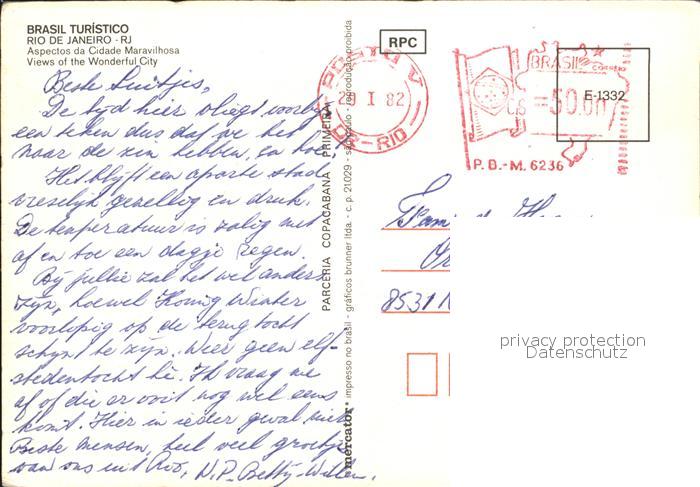 BRASIL TURÍSTICO
RIO DE JANEIRO - RJ
Aspectos da Cidade Maravilhosa
Views of the Wonderful City
Beste
De tijd hier vliegt voorbij
een teken dus dat we het
naar de zin hebben, en hoe!
Het blijft een aparte stad
vreselijk gezellig en druk.
De temperatuur is zalig met
af en toe een dagje regen.
Bij jullie zal het wel anders
zijn, hoewel Koning Winter
voorlopig op de terugtocht
schijnt te zijn. Weer geen elf-
stedentocht hè. Ik vraag me
af of die er ooit nog wel eens
komt. Hier in ieder geval niet
Beste mensen, heel veel groetjes
van ons uit Rio, W.P. Betty-Willem.
PARCERIA COPACABANA PRIMEIRA
mercator® impresso no brasil - gráficos brunner ltda. - c.p. 21029 - são paulo - reprodução proibida
RPC
POSTO V
29 I 82
DR-RIO
BRASIL
CORREIO
Cr$ =50.00
E-1332
P.B.-M. 6236
Fam
8531
privacy protection
Datenschutz